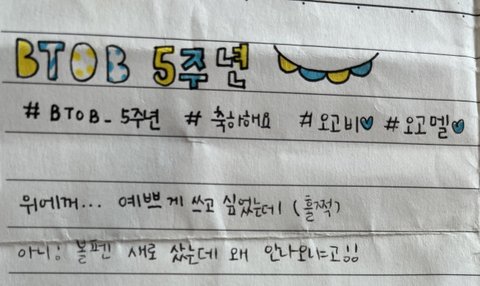 BTOB 5주년
# BTOB_5주년 # 축하해요 #오고비♥ #오고멜♥
위에꺼... 예쁘게 쓰고 싶었는데 (훌쩍)
아니! 볼펜 새로 샀는데 왜 안나오냐고!!